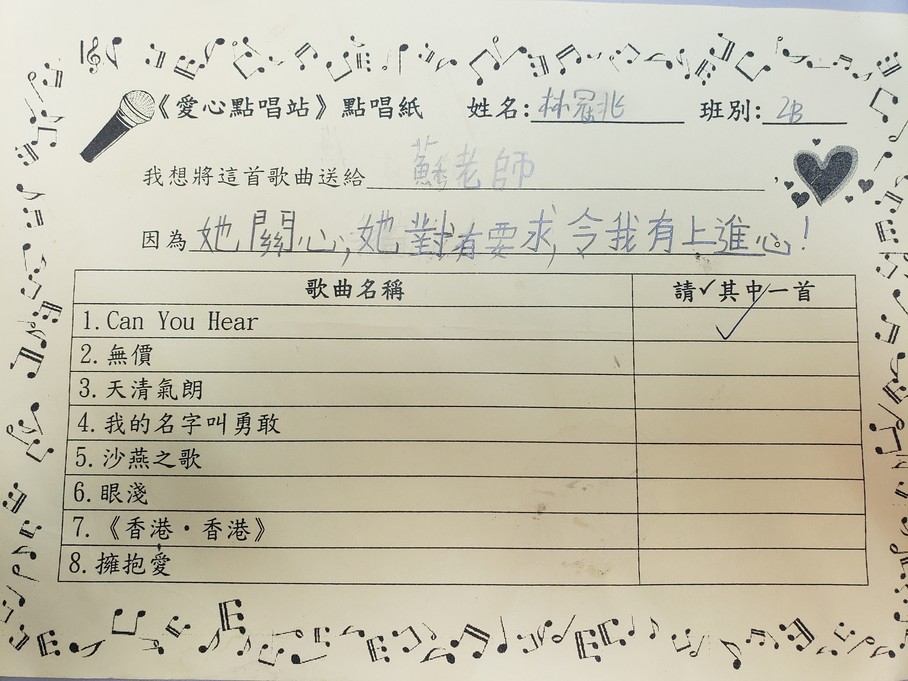 《愛心點唱站》點唱紙 姓名:林冠兆 班別:2B
我想將這首歌曲送給蘇老師,
因為她關心,她對有要求,令我有上進心!
歌曲名稱 請✓其中一首
1.Can You Hear ✓
2.無價
3.天清氣朗
4.我的名字叫勇敢
5.沙燕之歌
6.眼淺
7.《香港·香港》
8.擁抱愛